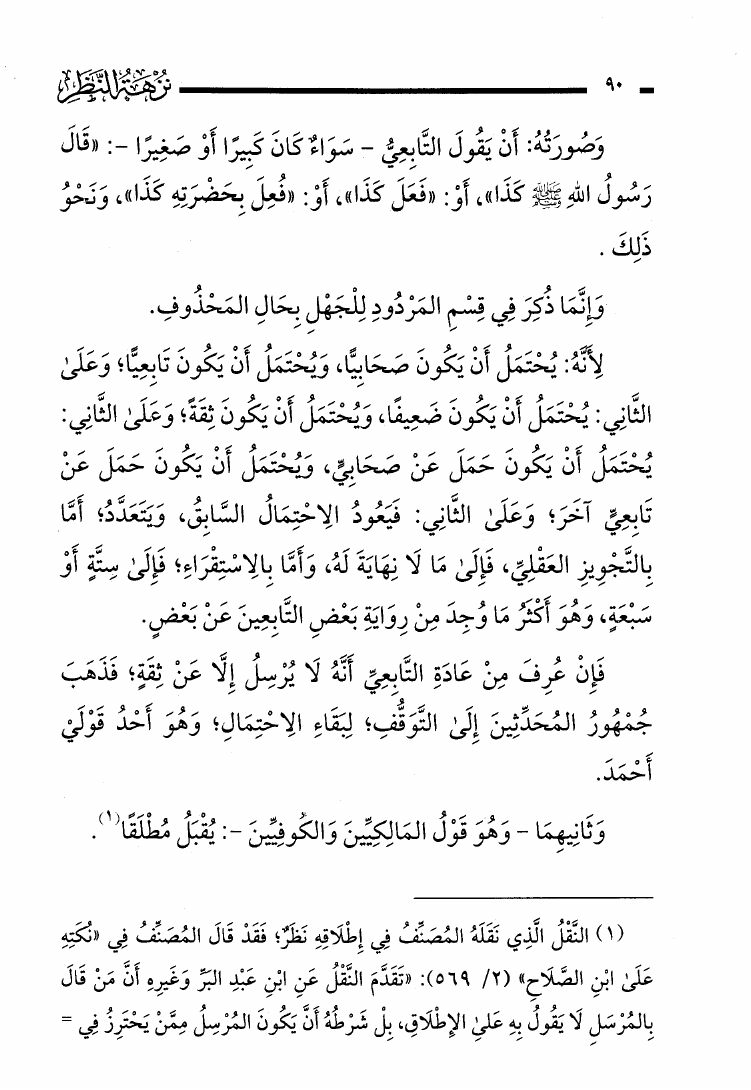 ٩٠ نُزْهَةُ النَّظَرِ
وَصُورَتُهُ: أَنْ يَقُولَ التَّابِعِيُّ - سَوَاءٌ كَانَ كَبِيرًا أَوْ صَغِيرًا -: «قَالَ
رَسُولُ اللهِ ﷺ كَذَا»، أَوْ: «فَعَلَ كَذَا»، أَوْ: «فُعِلَ بِحَضْرَتِهِ كَذَا»، وَنَحْوُ
ذَلِكَ .
وَإِنَّمَا ذُكِرَ فِي قِسْمِ المَرْدُودِ لِلْجَهْلِ بِحَالِ المَحْذُوفِ.
لِأَنَّهُ: يُحْتَمَلُ أَنْ يَكُونَ صَحَابِيًّا، وَيُحْتَمَلُ أَنْ يَكُونَ تَابِعِيًّا؛ وَعَلَىٰ
الثَّانِي: يُحْتَمَلُ أَنْ يَكُونَ ضَعِيفًا، وَيُحْتَمَلُ أَنْ يَكُونَ ثِقَةً؛ وَعَلَىٰ الثَّانِي:
يُحْتَمَلُ أَنْ يَكُونَ حَمَلَ عَنْ صَحَابِيٍّ، وَيُحْتَمَلُ أَنْ يَكُونَ حَمَلَ عَنْ
تَابِعِيٍّ آخَرَ؛ وَعَلَىٰ الثَّانِي: فَيَعُودُ الِاحْتِمَالُ السَّابِقُ، وَيَتَعَدَّدُ؛ أَمَّا
بِالتَّجْوِيزِ العَقْلِيِّ، فَإِلَىٰ مَا لَا نِهَايَةَ لَهُ، وَأَمَّا بِالِاسْتِقْرَاءِ؛ فَإِلَىٰ سِتَّةٍ أَوْ
سَبْعَةٍ، وَهُوَ أَكْثَرُ مَا وُجِدَ مِنْ رِوَايَةِ بَعْضِ التَّابِعِينَ عَنْ بَعْضٍ.
فَإِنْ عُرِفَ مِنْ عَادَةِ التَّابِعِيِّ أَنَّهُ لَا يُرْسِلُ إِلَّا عَنْ ثِقَةٍ؛ فَذَهَبَ
جُمْهُورُ المُحَدِّثِينَ إِلَىٰ التَّوَقُّفِ؛ لِبَقَاءِ الِاحْتِمَالِ؛ وَهُوَ أَحَدُ قَوْلَيْ
أَحْمَدَ.
وَثَانِيهِمَا - وَهُوَ قَوْلُ المَالِكِيِّينَ وَالكُوفِيِّينَ -: يُقْبَلُ مُطْلَقًا(١).
(١) النَّقْلُ الَّذِي نَقَلَهُ المُصَنِّفُ فِي إِطْلَاقِهِ نَظَرٌ؛ فَقَدْ قَالَ المُصَنِّفُ فِي «نُكَتِهِ
عَلَىٰ ابْنِ الصَّلَاحِ» (٢/ ٥٦٩): «تَقَدَّمَ النَّقْلُ عَنِ ابْنِ عَبْدِ البَرِّ وَغَيْرِهِ أَنَّ مَنْ قَالَ
بِالمُرْسَلِ لَا يَقُولُ بِهِ عَلَىٰ الإِطْلَاقِ، بِلْ شَرْطُهُ أَنْ يَكُونَ المُرْسِلُ مِمَّنْ يَحْتَرِزُ فِي =